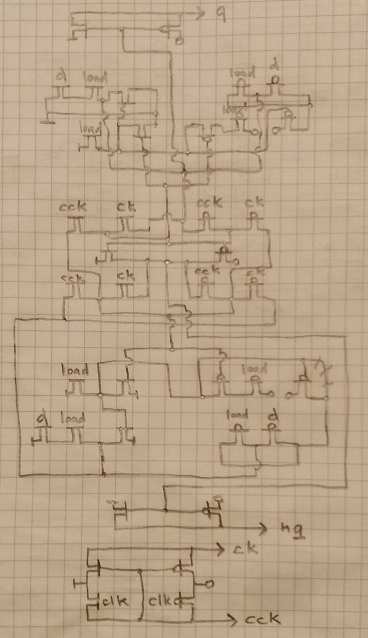 q
d load load d
load load
cck ck cck ck
cck ck cck ck
load load d
d load load d
nq
ck
clk clk
cck